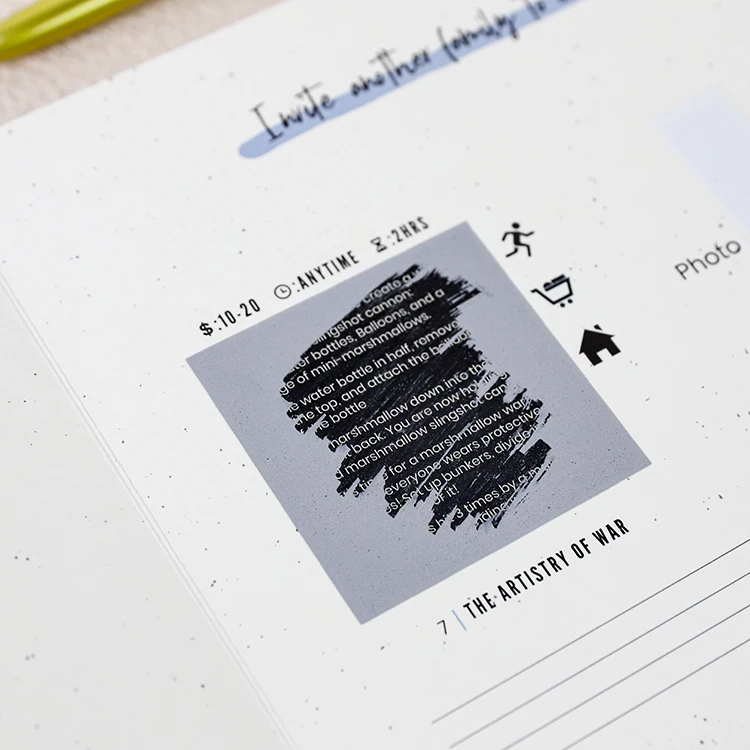 Invite another family to
$:10-20 :ANYTIME :2HRS
create a
slingshot cannon:
bottles, Balloons, and a
of mini-marshmallows.
water bottle in half, remove
the top, and attach the
bottle
marshmallow down into the
back. You are now
marshmallow slingshot
for a marshmallow war,
everyone wears protective
Set up bunkers, divide
of it!
3 times by a
7 | THE ARTISTRY OF WAR
Photo